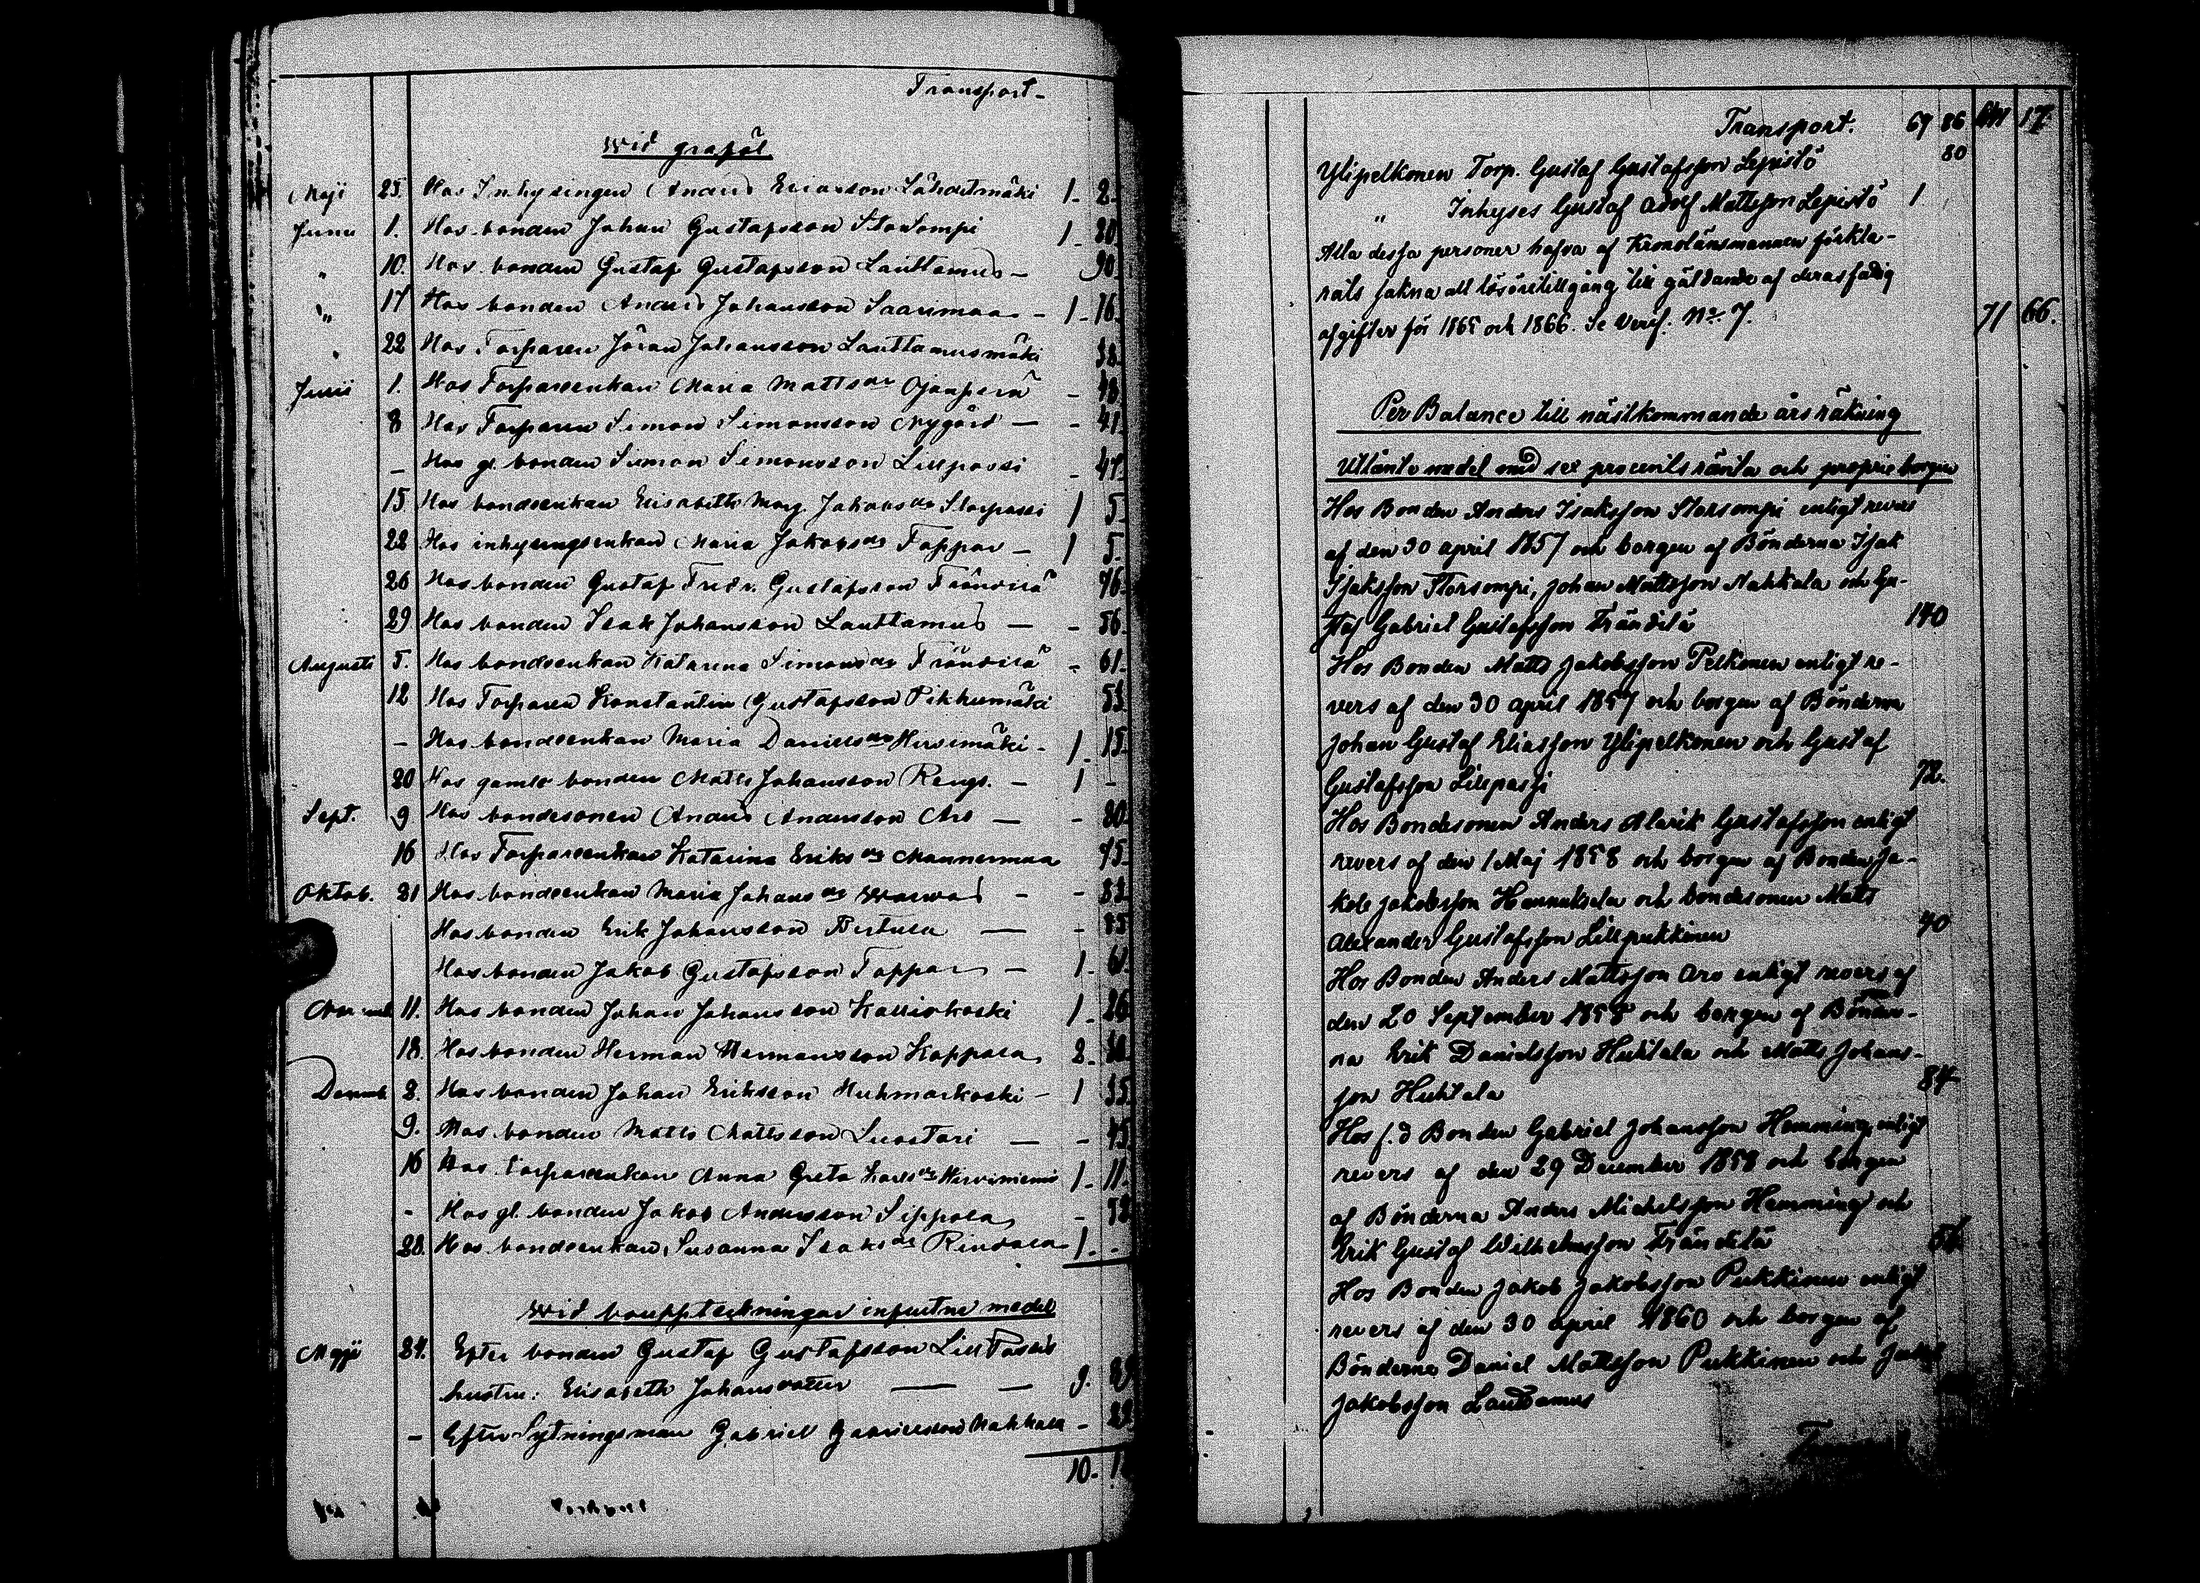 Transport-
Wid grafôl
Maji 25. Hos Inhysingen Anders Ericsson Lähdetmäki 1. 2.
Junii 1. Hos bonden Johan Gustafsson Storsompi 1. 80
" 10. Hos bonden Gustaf Gustafsson Lauttamus - 90.
" 17 Hos bonden Anders Johansson Saarimaa - 1. 16.
" 22 Hos Torparen Jöran Johansson Lauttamusmäki 38.
Julii 1. Hos Torpareenkan Maria Mattsdr Ojanperä - 48.
8 Hos Torparen Simon Simonsson Nygård - - 41.
- Hos gl. bonden Simon Simonsson Lillpassi - 47.
15. Hos bondeenkan Elisabeth Marg. Jakobsdr Storpassi 1 5.
22 Hos inhysingsenkan Maria Jakobsdr Toppar - 1 5.
26 Hos bonden Gustaf Fredr. Gustafsson Frändilä 76.
29 Hos bonden Isak Johansson Lauttamus - - 56.
Augusti 5. Hos bondeenkan Katarina Simonsdr Frändilä - 61.
12 Hos Torparen Konstantin Gustafsson Pikkumäki 53
- Hos bondeenkan Maria Danielsdr Hirvimäki - 1. 15.
20 Hos gamle bonden Matts Johansson Rengo. - 1 -
Sept. 9 Hos bondesonen Anders Andersson Aro - - 80.
16 Hos Torpareenkan Katarina Eriksdr Mannermaa 75.
Oktob. 21 Hos bondeenkan Maria Johansdr Warwas - - 83.
Hos bonden Erik Johansson Pertula - - 85
Hos bonden Jakob Gustafsson Toppar - 1. 61.
11. Hos bonden Johan Johansson Kalliokoski 1. 26
18. Hos bonden Herman Hermansson Koppala 2.
Decemb. 8. Hos bonden Johan Eriksson Huhmarkoski - 1 35.
9. Hos bonden Matts Mattsson Luostari - - 45.
16 Hos torpareenkan Anna Greta Karlsdr Hirviniemi 1. 11.
- Hos gl. bonden Jakob Andersson Sippola - 52
28. Hos bondeenkan Susanna Isaksdr Rintala 1. -
Wid bouppteckningar influtne medel
Maji 24. Efter bonden Gustaf Gustafsson Lill Passis
hustru: Elisabeth Johansdotter - - 9.
- Efter Sytningsman Gabriel Gabrielsson Nahkala - 29
10.
Transport. 69 86 17.
Ylipelkonen Torp. Gustaf Gustafsson Lepistö 80
" Inhyses Gustaf Adolf Mattsson Lepistö 1
Alla dessa personer hafva af Kronolänsmannen förkla-
rats sakna all lösöretillgång till gäldande af deras fattig
afgifter för 1865 och 1866. Se Verif. No. 7. 71 66.
Per Balance till nästkommande års räkning
Utlånte medel emd sex procents ränta och proprie borgen
Hos Bonden Anders Isaksson Storsompi enligt revers
af den 30 april 1857 och borgen af Bönderna Isak
Isaksson Storsompi, Johan Mattsson Nahkala och Gu-
staf Gabriel Gustafsson Frändilä 140
Hos Bonden Matts Jakobsson Pelkonen enligt re-
vers af den 30 april 1857 och borgen af Bönderna
Johan Gustaf Eliasson Ylipelkonen och Gustaf
Gustafsson Lillpassi 72.
Hos Bondesonen Anders Alarik Gustafsson enligt
revers af den 1 Maj 1858 och borgen af Bonden Ja-
kob Jakobsson Hannuksela och bondesonen Matts
Alexander Gustafsson Lillpukkinen 40
Hos Bonden Anders Mattsson Aro enligt revers af
den 20 September 1858 och borgen af Bönder-
na Erik Danielsson Huhtala och Matts Johans-
son Huhtala 84
Hos f.d Bonden Gabriel Johansson Hemming, enligt
revers af den 29 December 1858 och borgen
af Bönderna Anders Michelsson Hemming och
Erik Gustaf Wilhelmsson Frändilä 56
Hos Bonden Jakob Jakobsson Pukkinen enligt
revers af den 30 april 1860 och borgen af
Bönderna Daniel Mattsson Pukkinen och Jakob
Jakobsson Lauttamus